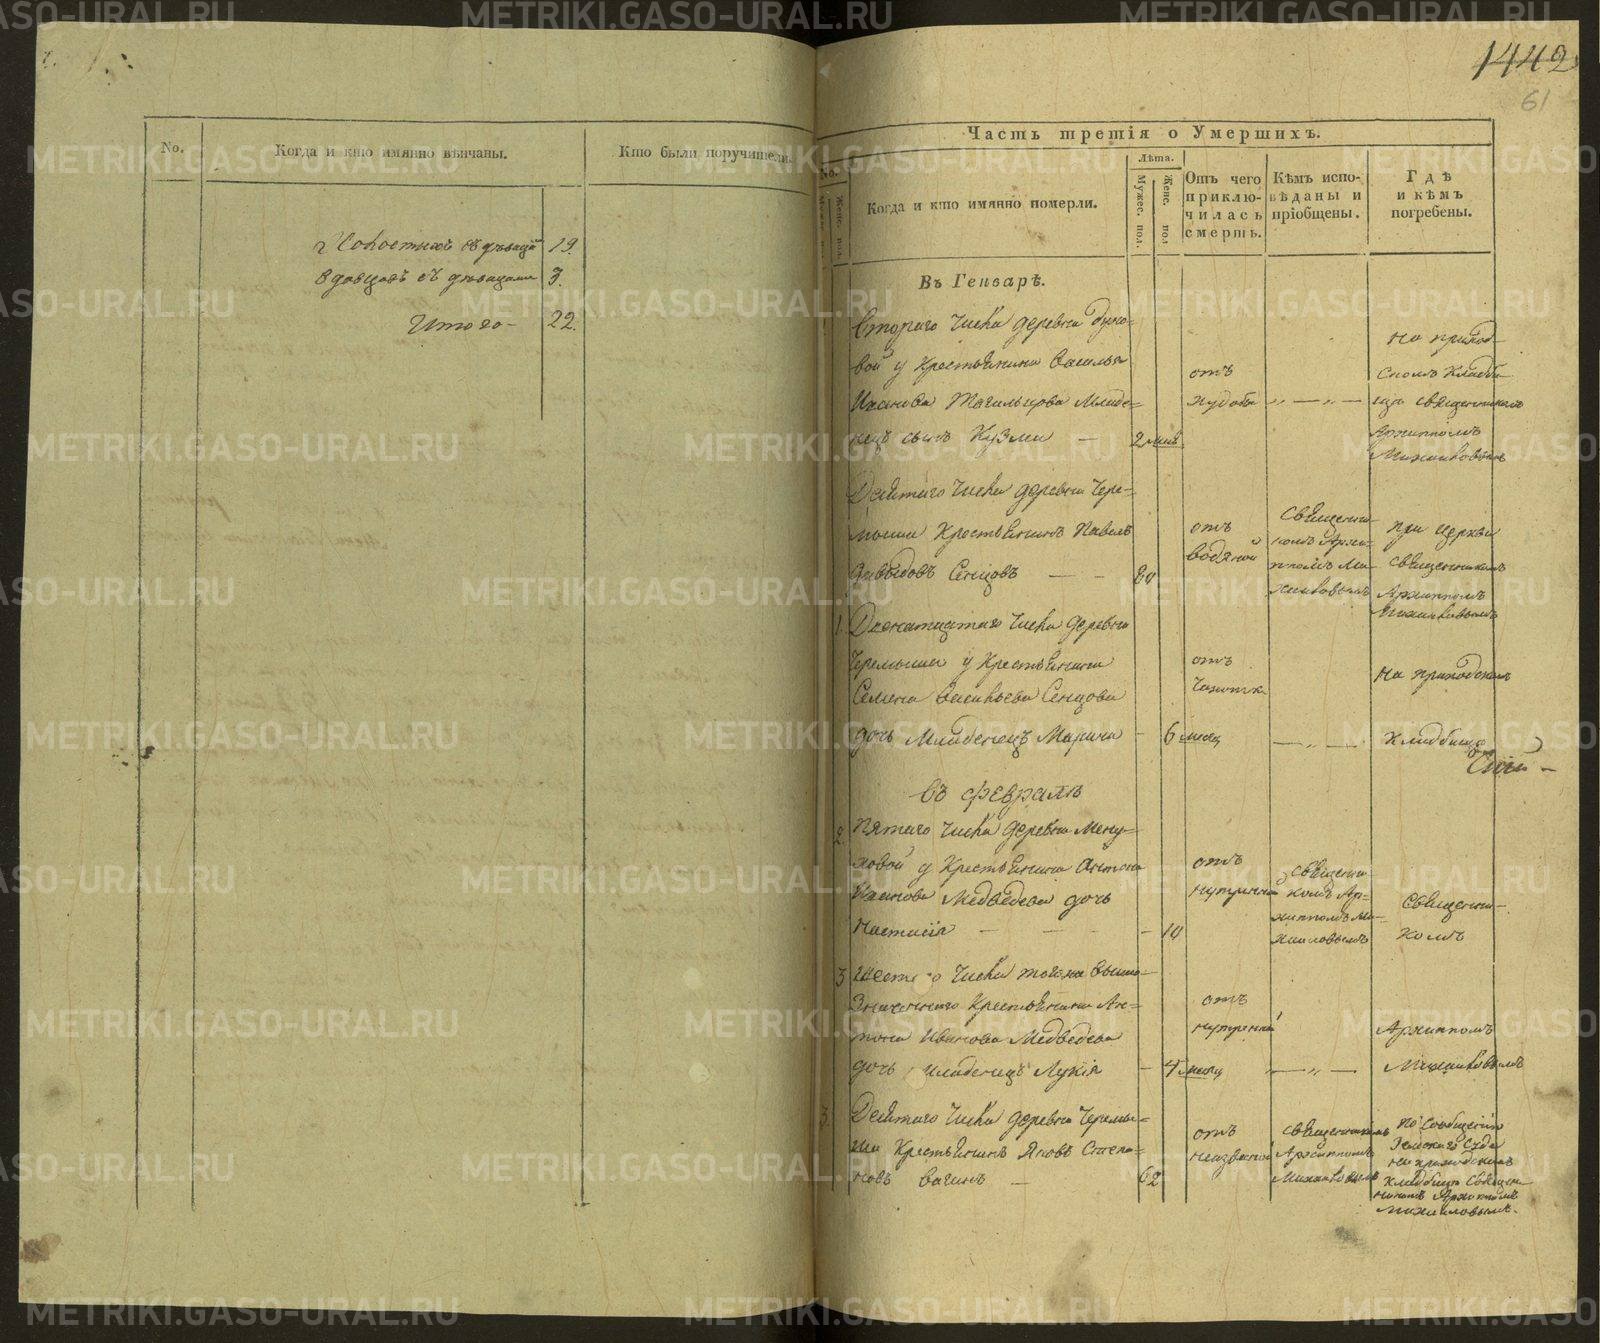 1442
61
No.
Когда и кто имянно вѣнчаны.
Кто были поручители.
Холостыхъ съ дѣвицами 19.
вдовцовъ съ дѣвицами 3.
Итого - 22.
Часть третія о Умершихъ.
No.
Женс. пол.
Когда и кто имянно померли.
Лѣта.
Мужес. пол.
Женс. пол
Отъ чего приклю-чилась смерть.
Кѣмъ испо-вѣданы и пріобщены.
Гдѣ и кѣмъ погребены.
Въ Генварѣ.
Втораго числа деревни
вой у Крестьянина Василья
Иванова младе=
нецъ сынъ Кузма — 2 мѣс.
отъ
на приход-
скомъ кладби-
щѣ священникомъ
Архипомъ
Михайловымъ
Десятаго числа деревни Чере=
мыши Крестьянинъ Павелъ
Давыдовъ Сенцовъ — —
отъ
водяной
Священни-
комъ Архи-
помъ Ми-
хайловымъ
при церкви
священникомъ
Архипомъ
Михайловымъ
1. Двенатцатаго числа деревни
Черемыши у Крестьянина
Семена Васильева Сенцова
дочь Младенецъ Марина - 6 мѣсяц
отъ
чахотки
на приходскомъ
кладбище
въ феврале
2. Пятаго числа деревни
ховой у Крестьянина Антона
Иванова Медведева дочь
Настасія — — - 10
отъ
нутренной
священни-
комъ Ар-
хипомъ Ми-
хайловымъ
Священни-
комъ
3 Шестаго числа тогоже выше-
значеннаго Крестьянина Ан-
тона Иванова Медведева
дочь младенецъ Лукія - 4 мѣсяц
отъ
нутренной
Архипомъ
Михайловымъ
3. Десятаго числа деревни Черемы=
ши Крестьянинъ Яковъ Степа=
новъ Вагинъ — 62
отъ
священникомъ
Архипомъ
Михайловымъ
По сообщенію
Земскаго Суда
на приходскомъ
кладбище Священ-
никомъ Архипомъ
Михайловымъ.
METRIKI.GASO-URAL.RU